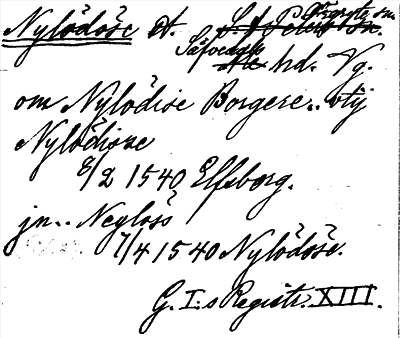 Nylödöse st.
Säfvedals hrd. Vg.
om Nylödise Borgere.. vtij
Nylödisze
8/2 1540 Elfsborg.
jn.. Neylöss
7/4 1540 Nylödöse.
G. I:s Registr. XIII.